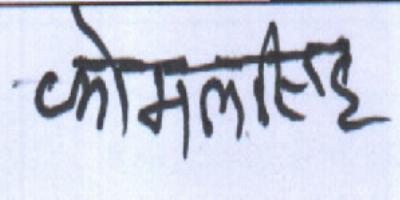 कोमलसिंह